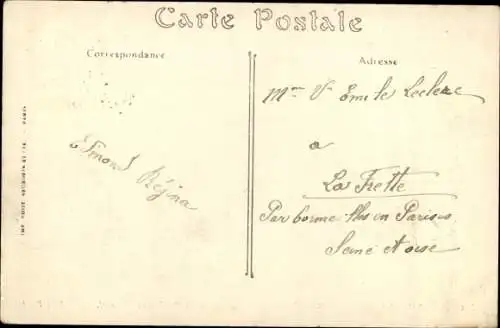 Carte Postale
Correspondance
Adresse
Mme Ve Emile Leclerc
a
La Frette
Par Corme lles en Parisis
Seine et oise
Simond Régina